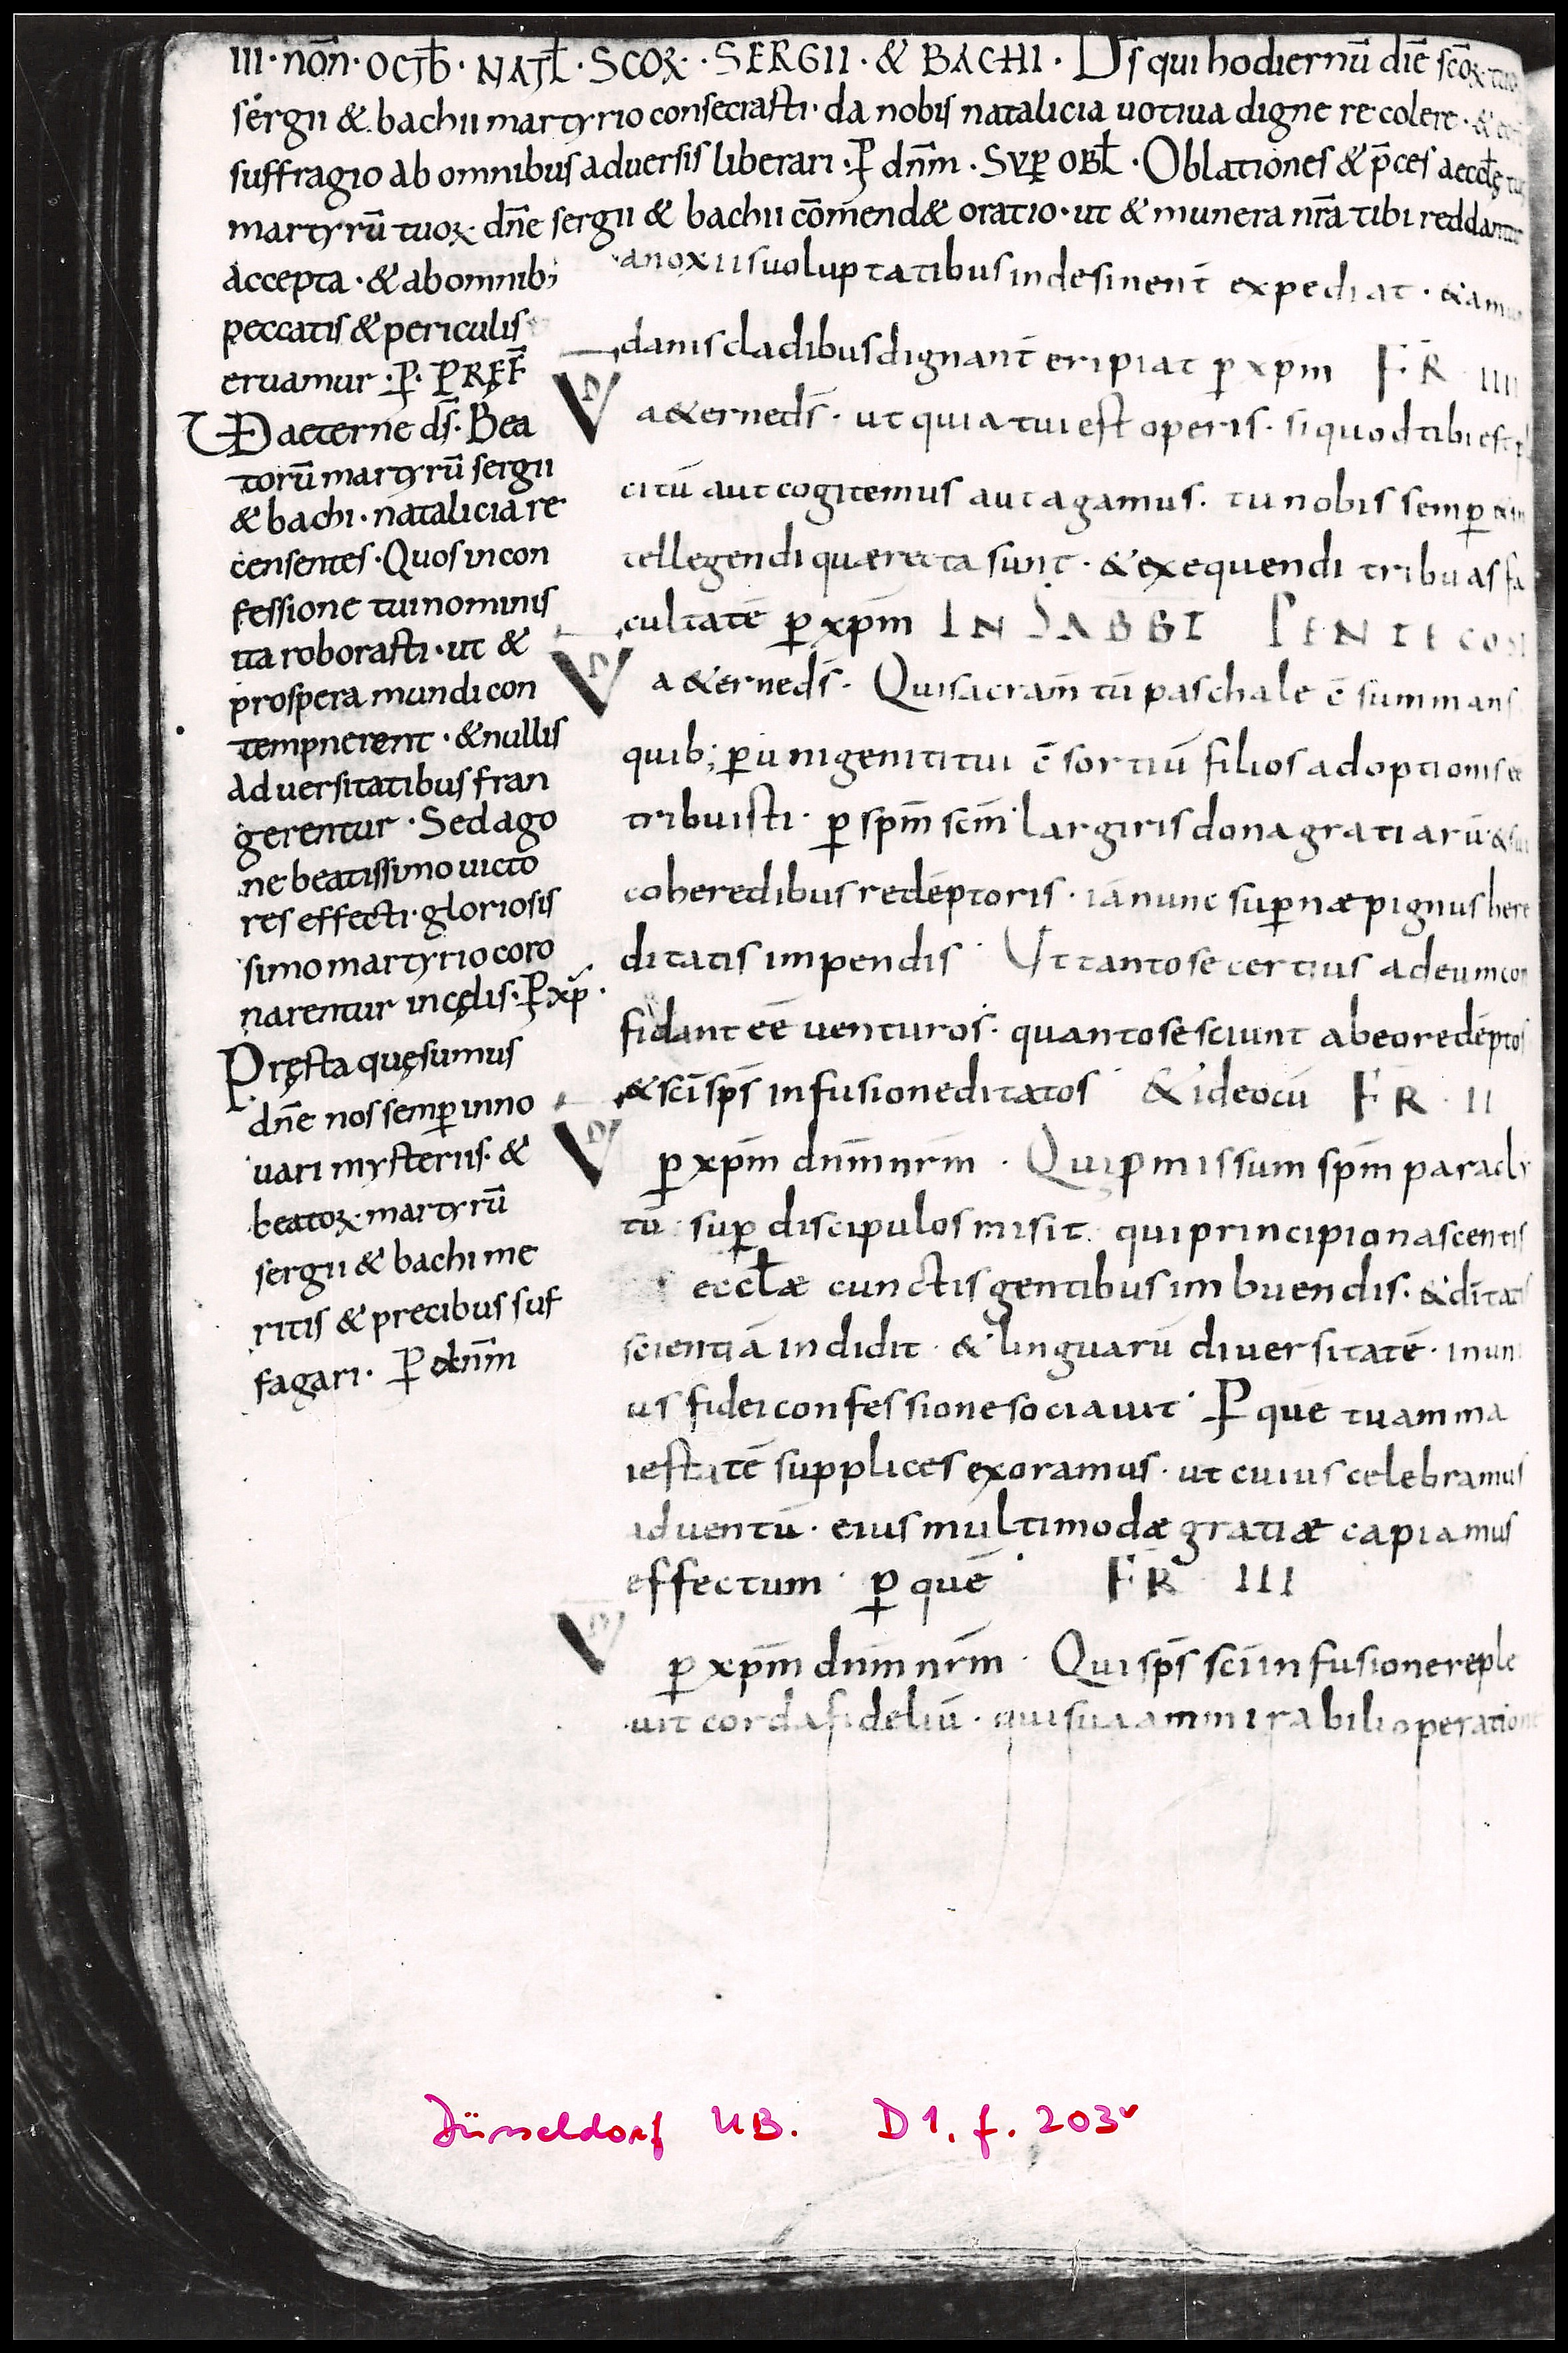 III · noн̄ · OCTƀ · NATŁ · SCOꝜ · SERGII · & BACHI · D̄s qui hodiernū diē scōꝝ
sergii & bachii martyrio consecrasti · da nobis natalicia uotiua digne recolere · &
suffragio ab omnibus aduersis liberari · P dn̄m · SUP̄ OBŁ · Oblationes & p̄ces aeccłę
martyrū tuoꝝ dn̄e sergii & bachii com̄end& oratio · ut & munera nr̄a tibi reddantur
accepta · & ab omnib;
peccatis & periculis
eruamur · P · PRĘF̄
UD aeterne ds̄ · Bea
torū martyrū sergii
& bachi · natalicia re
censentes · Quos in con
fessione tui nominis
ita roborasti · ut &
prospera mundi con
tempnerent · & nullis
aduersitatibus fran
gerentur · Sed ago
ne beatissimo uicto
res effecti · gloriosis
simo martyrio coro
narentur in cęlis · P xp̄
Pręsta quęsumus
dn̄e nos semꝑ inno
uari mysteriis · &
beatoꝝ martyrū
sergii & bachi me
ritis & precibus suf
fagari · P dn̄m
a noxiis uoluptatibus indesinent̄ expediat · & a
danis cladibus dignant̄ eripiat ꝑ xp̄m FR IIII
VD a&erne ds̄ · ut quia tui est operis · si quod tibi est
citū aut cogitemus aut agamus · tu nobis semꝑ & in
tellegendi quae recta sunt · & exequendi tribuas fa
cultatē ꝑ xp̄m IN SABBT PENTECOST
VD a&erne ds̄ · Qui sacram̄tū paschale c̄summans
quib; ꝑ unigeniti tui c̄sortiū filios adoptionis
tribuisti · ꝑ sp̄m sc̄m largiris dona gratiarū · & sui
coheredibus redēptoris · iā nunc suꝑnae pignus here
ditatis impendis · Ut tanto se certius ad eum con
fidant eē venturos · quanto se sciunt ab eo redēptos
& sc̄i sp̄s infusione ditatos · & ideo cū FR · II
VD ꝑ xp̄m dn̄m nr̄m · Qui ꝓmissum sp̄m paracly
tū suꝑ discipulos misit · qui principio nascentis
eccłae cunctis gentibus imbuendis · & dītatis
scientiā indidit · & linguarū diversitatē · in uni
us fidei confessione sociavit · P quē tuam ma
iestatē supplices exoramus · ut cuius celebramus
adventū · eius multimodae gratiae capiamus
effectum · ꝑ quē FR III
VD ꝑ xp̄m dn̄m nr̄m · Qui sp̄s sc̄i infusione reple
vit corda fideliū · qui sua ammirabili operatione
Düsseldorf UB. D 1, f. 203v